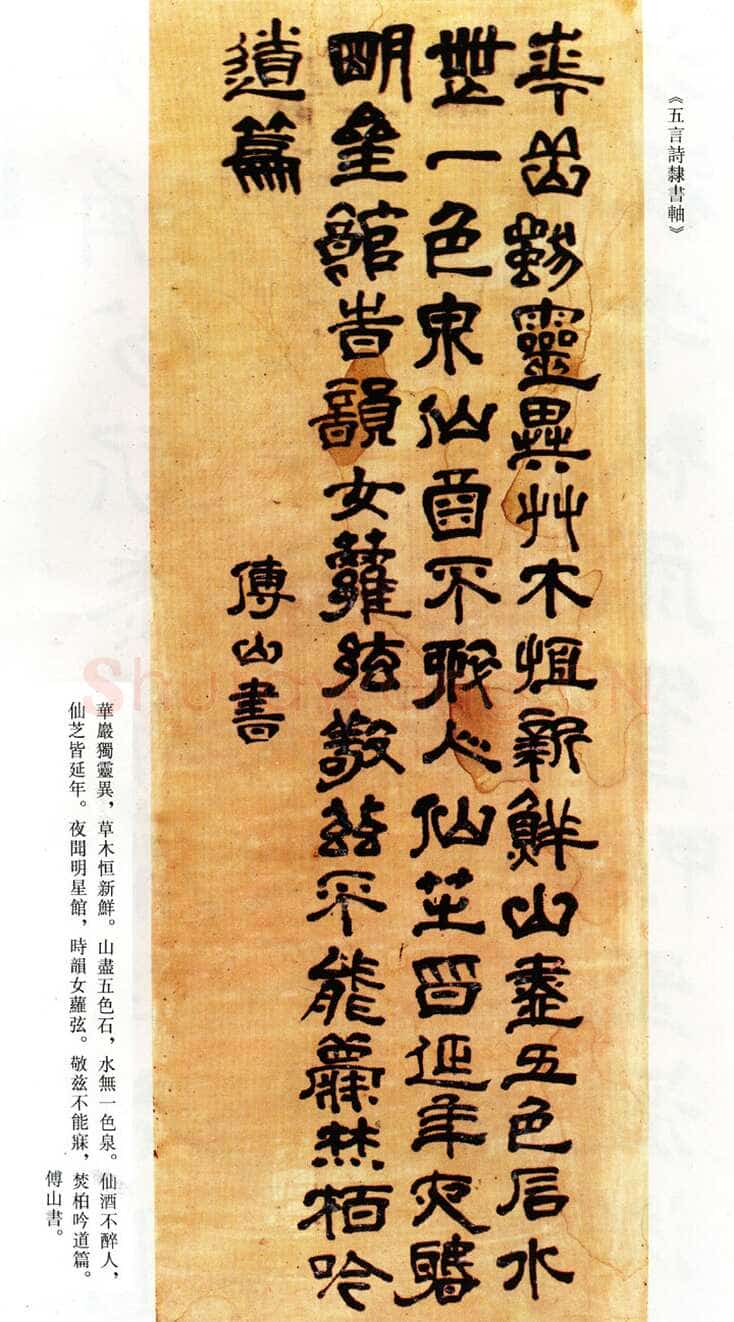 《五言詩隸書軸》
華嵒獨靈異艸木恆新鮮山盡五色石水
無一色泉仙酒不醉人仙芝皆延年夜聞
明星館時韻女蘿弦敬兹不能寐焚柏吟
道篇
傅山書
華巖獨靈異，草木恒新鮮。山盡五色石，水無一色泉。仙酒不醉人，
仙芝皆延年。夜聞明星館，時韻女蘿弦。敬兹不能寐，焚柏吟道篇。
傅山書。